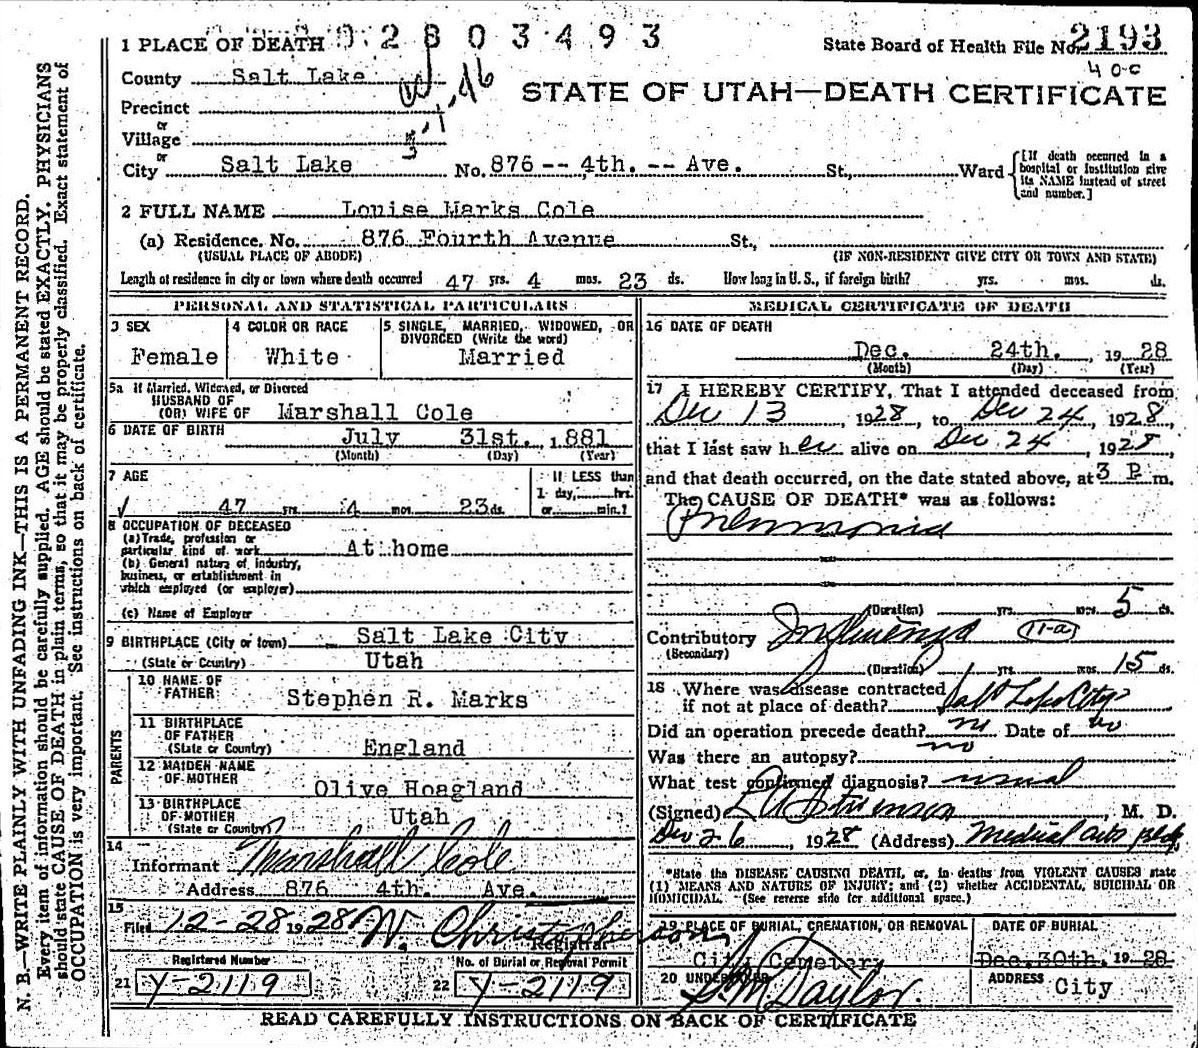 1 PLACE OF DEATH 02803493 State Board of Health File No. 2193
County Salt Lake 40c
STATE OF UTAH—DEATH CERTIFICATE
Precinct
or
Village
or
City Salt Lake No. 876 -- 4th. -- Ave. St., Ward [If death occurred in a hospital or institution give its NAME instead of street and number.]
2 FULL NAME Louise Marks Cole
(a) Residence. No. 876 Fourth Avenue St.,
(USUAL PLACE OF ABODE) (IF NON-RESIDENT GIVE CITY OR TOWN AND STATE)
Length of residence in city or town where death occurred 47 yrs. 4 mos. 23 ds. How long in U.S., if foreign birth? yrs. mos. ds.
PERSONAL AND STATISTICAL PARTICULARS
3 SEX
Female
4 COLOR OR RACE
White
5 SINGLE, MARRIED, WIDOWED, OR
DIVORCED (Write the word)
Married
5a If Married, Widowed, or Divorced
HUSBAND OF
(OR) WIFE OF Marshall Cole
6 DATE OF BIRTH July 31st. 1881
(Month) (Day) (Year)
7 AGE
47 yrs. 4 mos. 23 ds.
If LESS than
1 day, hrs.
or min.?
8 OCCUPATION OF DECEASED
(a) Trade, profession or
particular kind of work At home
(b) General nature of industry,
business, or establishment in
which employed (or employer)
(c) Name of Employer
9 BIRTHPLACE (City or town) Salt Lake City
(State or Country) Utah
PARENTS
10 NAME OF
FATHER Stephen R. Marks
11 BIRTHPLACE
OF FATHER
(State or Country) England
12 MAIDEN NAME
OF MOTHER Olive Hoagland
13 BIRTHPLACE
OF MOTHER
(State or Country) Utah
14
Informant Marshall Cole
Address 876 4th. Ave.
15
Filed 12-28 1928 W. Christopherson
Registrar
Registered Number No. of Burial or Removal Permit
21 Y-2119 22 Y-2119
MEDICAL CERTIFICATE OF DEATH
16 DATE OF DEATH
Dec. 24th. , 19 28
(Month) (Day) (Year)
17 I HEREBY CERTIFY, That I attended deceased from
Dec 13, 1928, to Dec 24, 1928,
that I last saw her alive on Dec 24, 1928,
and that death occurred, on the date stated above, at 3 P. m.
The CAUSE OF DEATH* was as follows:
Pneumonia
(Duration) yrs. mos. 5 ds.
Contributory Influenza 11-a
(Secondary)
(Duration) yrs. mos. 15 ds.
18 Where was disease contracted
if not at place of death? Salt Lake City
Did an operation precede death? no Date of no
Was there an autopsy? no
What test confirmed diagnosis? usual
(Signed) Stevenson, M. D.
Dec 26, 1928 (Address) Medical arts bldg
*State the DISEASE CAUSING DEATH, or, in deaths from VIOLENT CAUSES state
(1) MEANS AND NATURE OF INJURY; and (2) whether ACCIDENTAL, SUICIDAL OR
HOMICIDAL. (See reverse side for additional space.)
19 PLACE OF BURIAL, CREMATION, OR REMOVAL
City Cemetery
DATE OF BURIAL
Dec. 30th. 19 28
20 UNDERTAKER
S. M. Taylor.
ADDRESS
City
READ CAREFULLY INSTRUCTIONS ON BACK OF CERTIFICATE
N. B.—WRITE PLAINLY WITH UNFADING INK—THIS IS A PERMANENT RECORD.
Every item of information should be carefully supplied. AGE should be stated EXACTLY. PHYSICIANS
should state CAUSE OF DEATH in plain terms, so that it may be properly classified. Exact statement of
OCCUPATION is very important. See instructions on back of certificate.